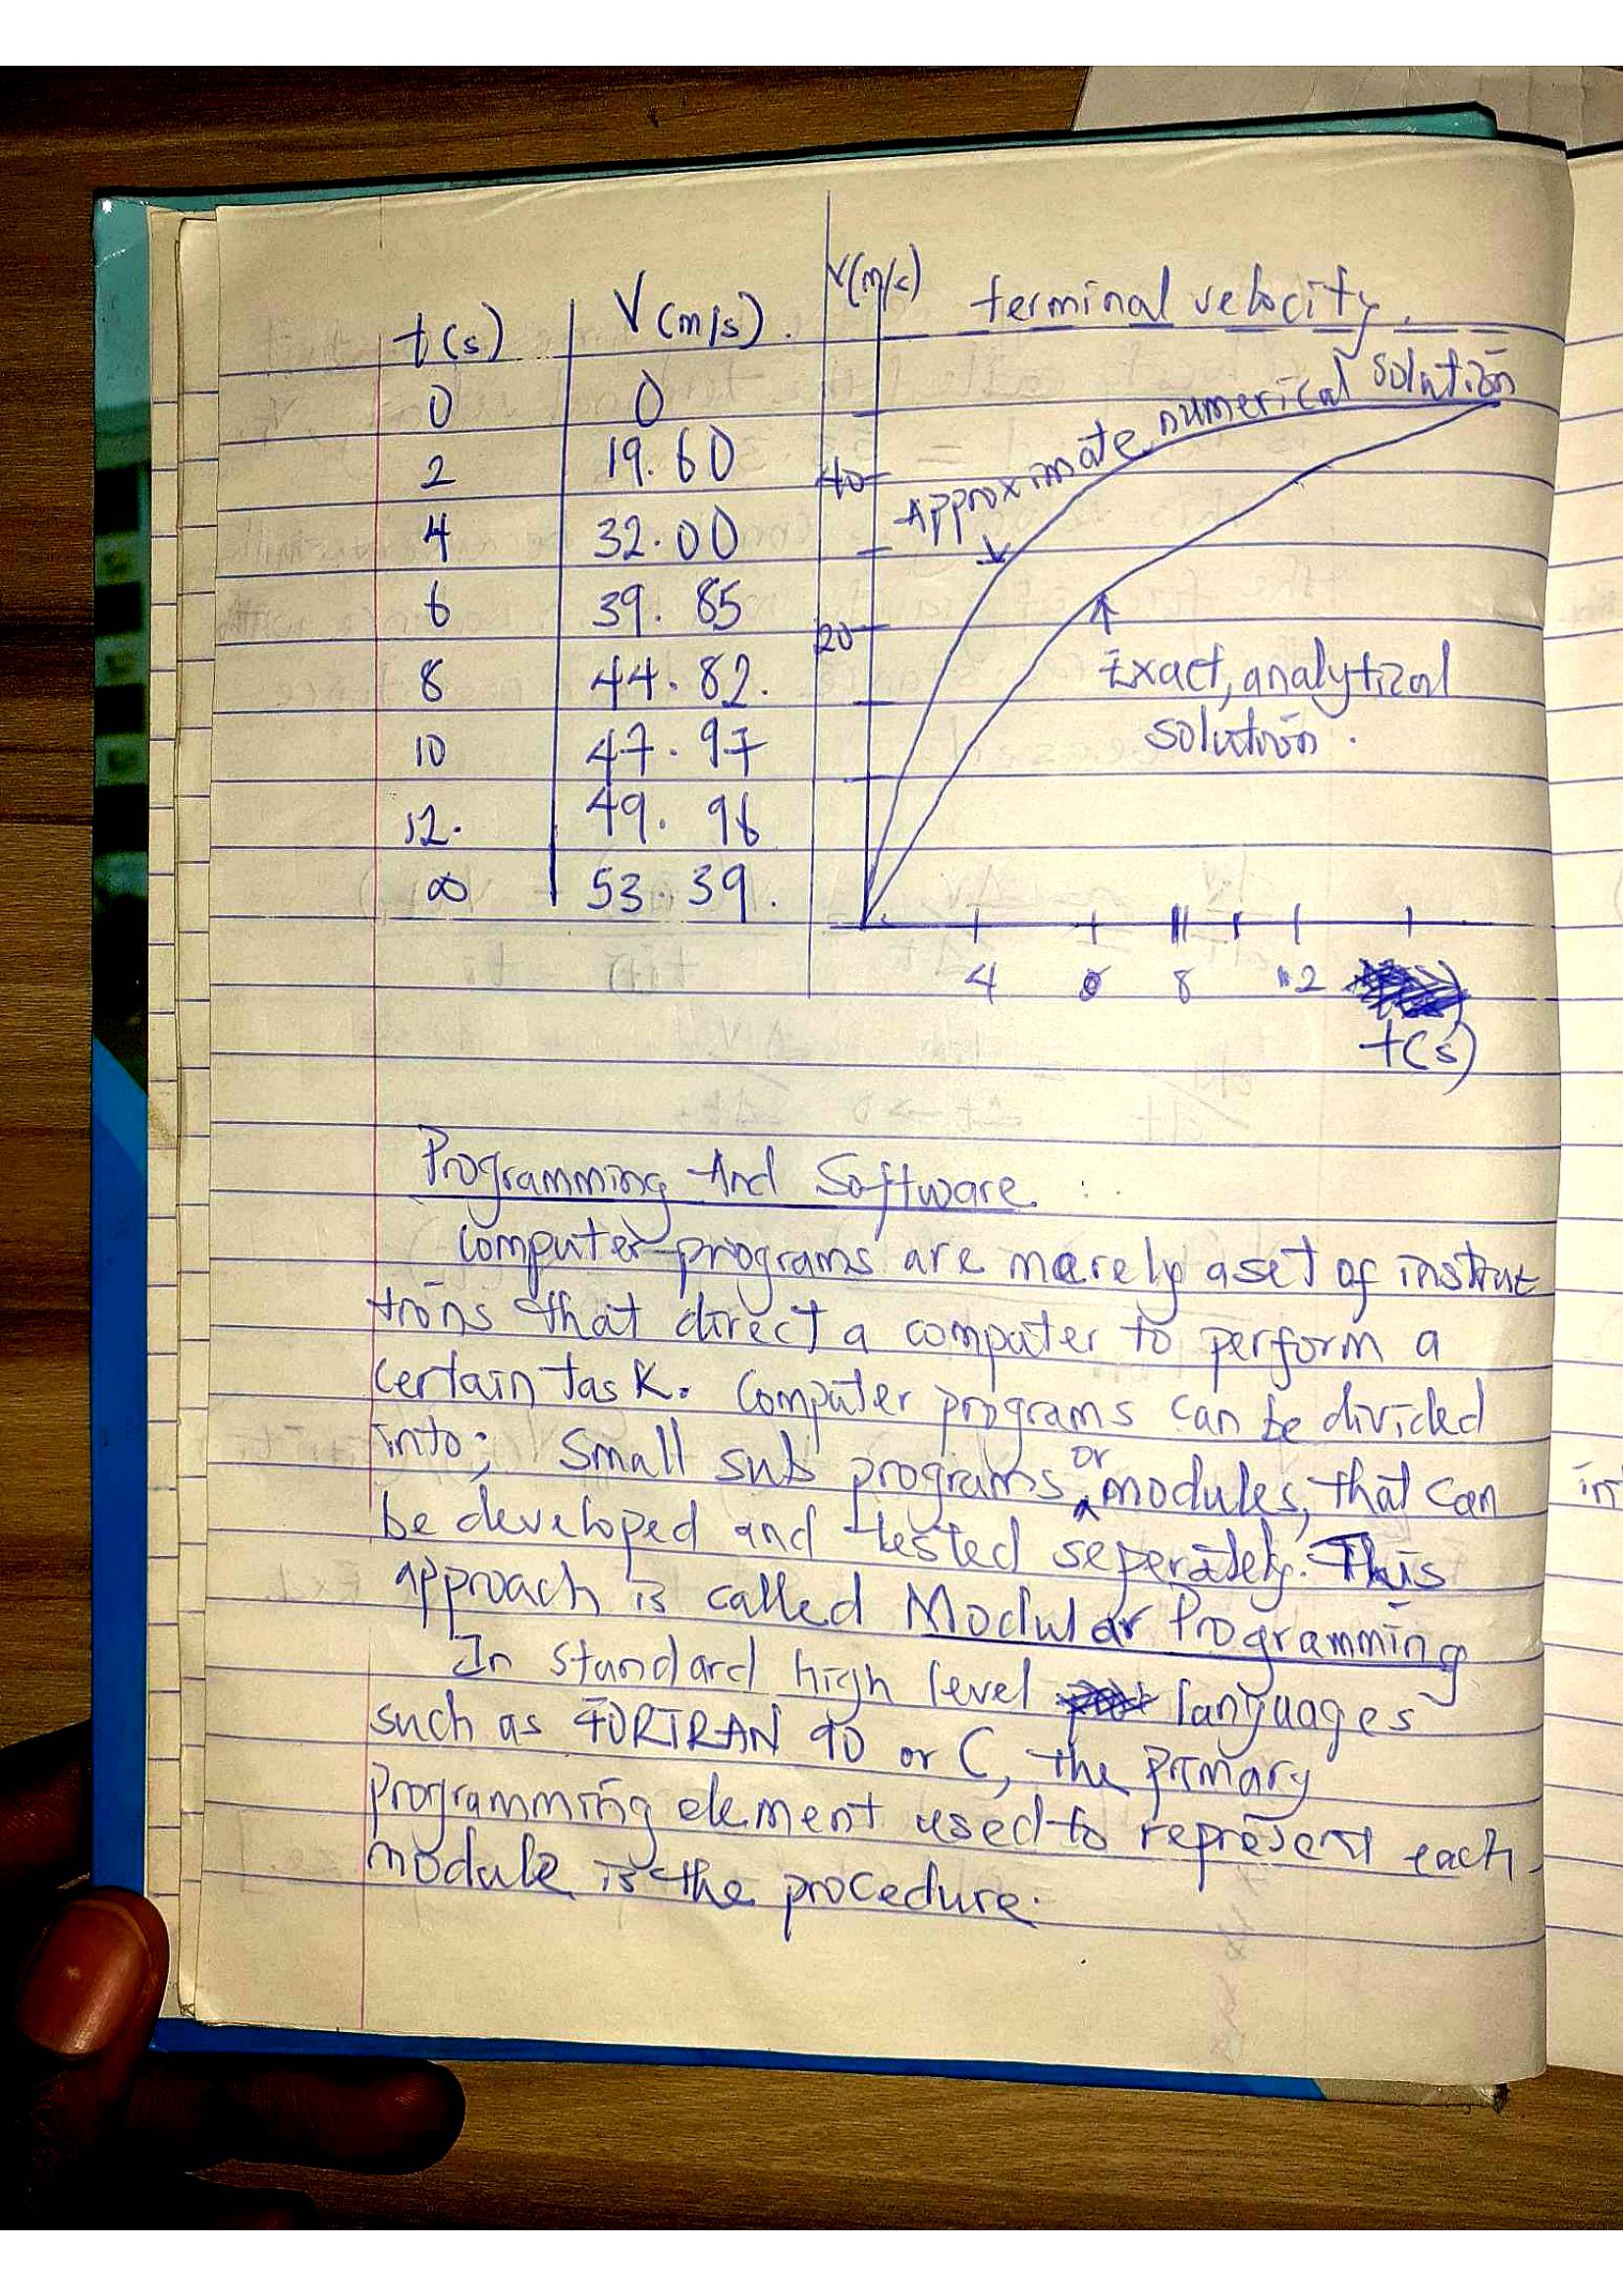 t(s) V(m/s).
0 0
2 19.60
4 32.00
6 39.85
8 44.82.
10 47.97
12. 49.96
∞ 53.39.
V(m/s)
terminal velocity.
Approximate numerical solution
40
20
Exact, analytical
solution.
4 6 8 12
t(s)
Programming And Software.
Computer programs are merely a set of instruc
tions that direct a computer to perform a
certain task. Computer programs can be divided
into; Small sub programs or modules, that can
be developed and tested seperately. This
approach is called Modular Programming
In standard high level languages
such as FORTRAN 90 or C, the primary
programming element used to represent each
module is the procedure.